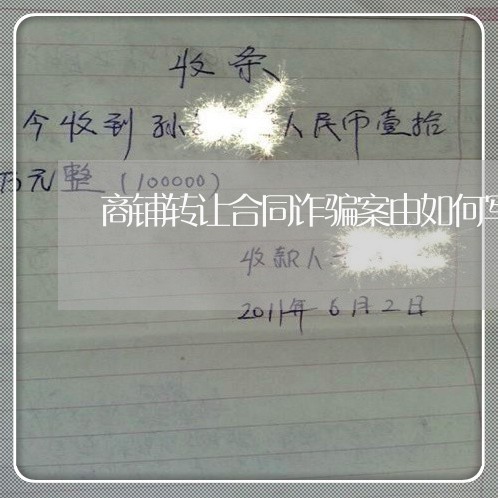 收条
今收到孙 人民币壹拾
万元整(100000)
商铺转让合同诈骗案由如何写
收款人
2011年6月2日